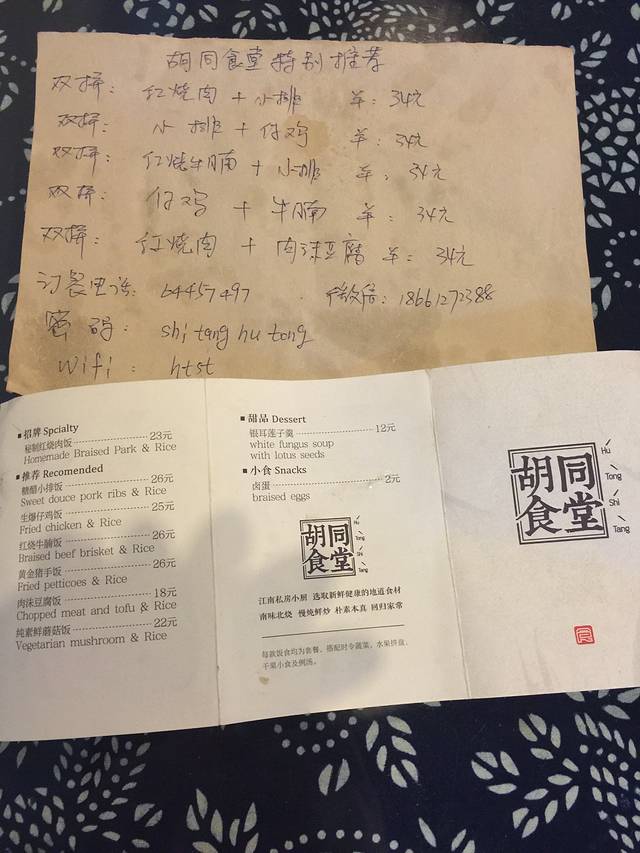 胡同食堂特别推荐
双拼: 红烧肉 + 小排 羊: 34元
双拼: 小排 + 仔鸡 羊: 34元
双拼: 红烧牛腩 + 小排 羊: 34元
双拼: 仔鸡 + 牛腩 羊: 34元
双拼: 红烧肉 + 肉沫豆腐 羊: 34元
订餐电话: 64457497 . 微信: 18661272388
密码: shi tang hu tong
Wifi: htst
■ 招牌 Spcialty
秘制红烧肉饭 23元
Homemade Braised Park & Rice
■ 推荐 Recomended
糖醋小排饭 26元
Sweet douce pork ribs & Rice
生爆仔鸡饭 25元
Fried chicken & Rice
红烧牛腩饭 26元
Braised beef brisket & Rice
黄金猪手饭 26元
Fried petticoes & Rice
肉沫豆腐饭 18元
Chopped meat and tofu & Rice
纯素鲜蘑菇饭 22元
Vegetarian mushroom & Rice
■ 甜品 Dessert
银耳莲子羹 12元
white fungus soup
with lotus seeds
■ 小食 Snacks
卤蛋 2元
braised eggs
胡同
食堂
Hu
Tong
Shi
Tang
江南私房小厨 选取新鲜健康的地道食材
南味北烧 慢炖鲜炒 朴素本真 回归家常
每款饭食均为套餐，搭配时令蔬菜，水果拼盘，
干果小食及例汤。
胡同
食堂
Hu
Tong
Shi
Tang